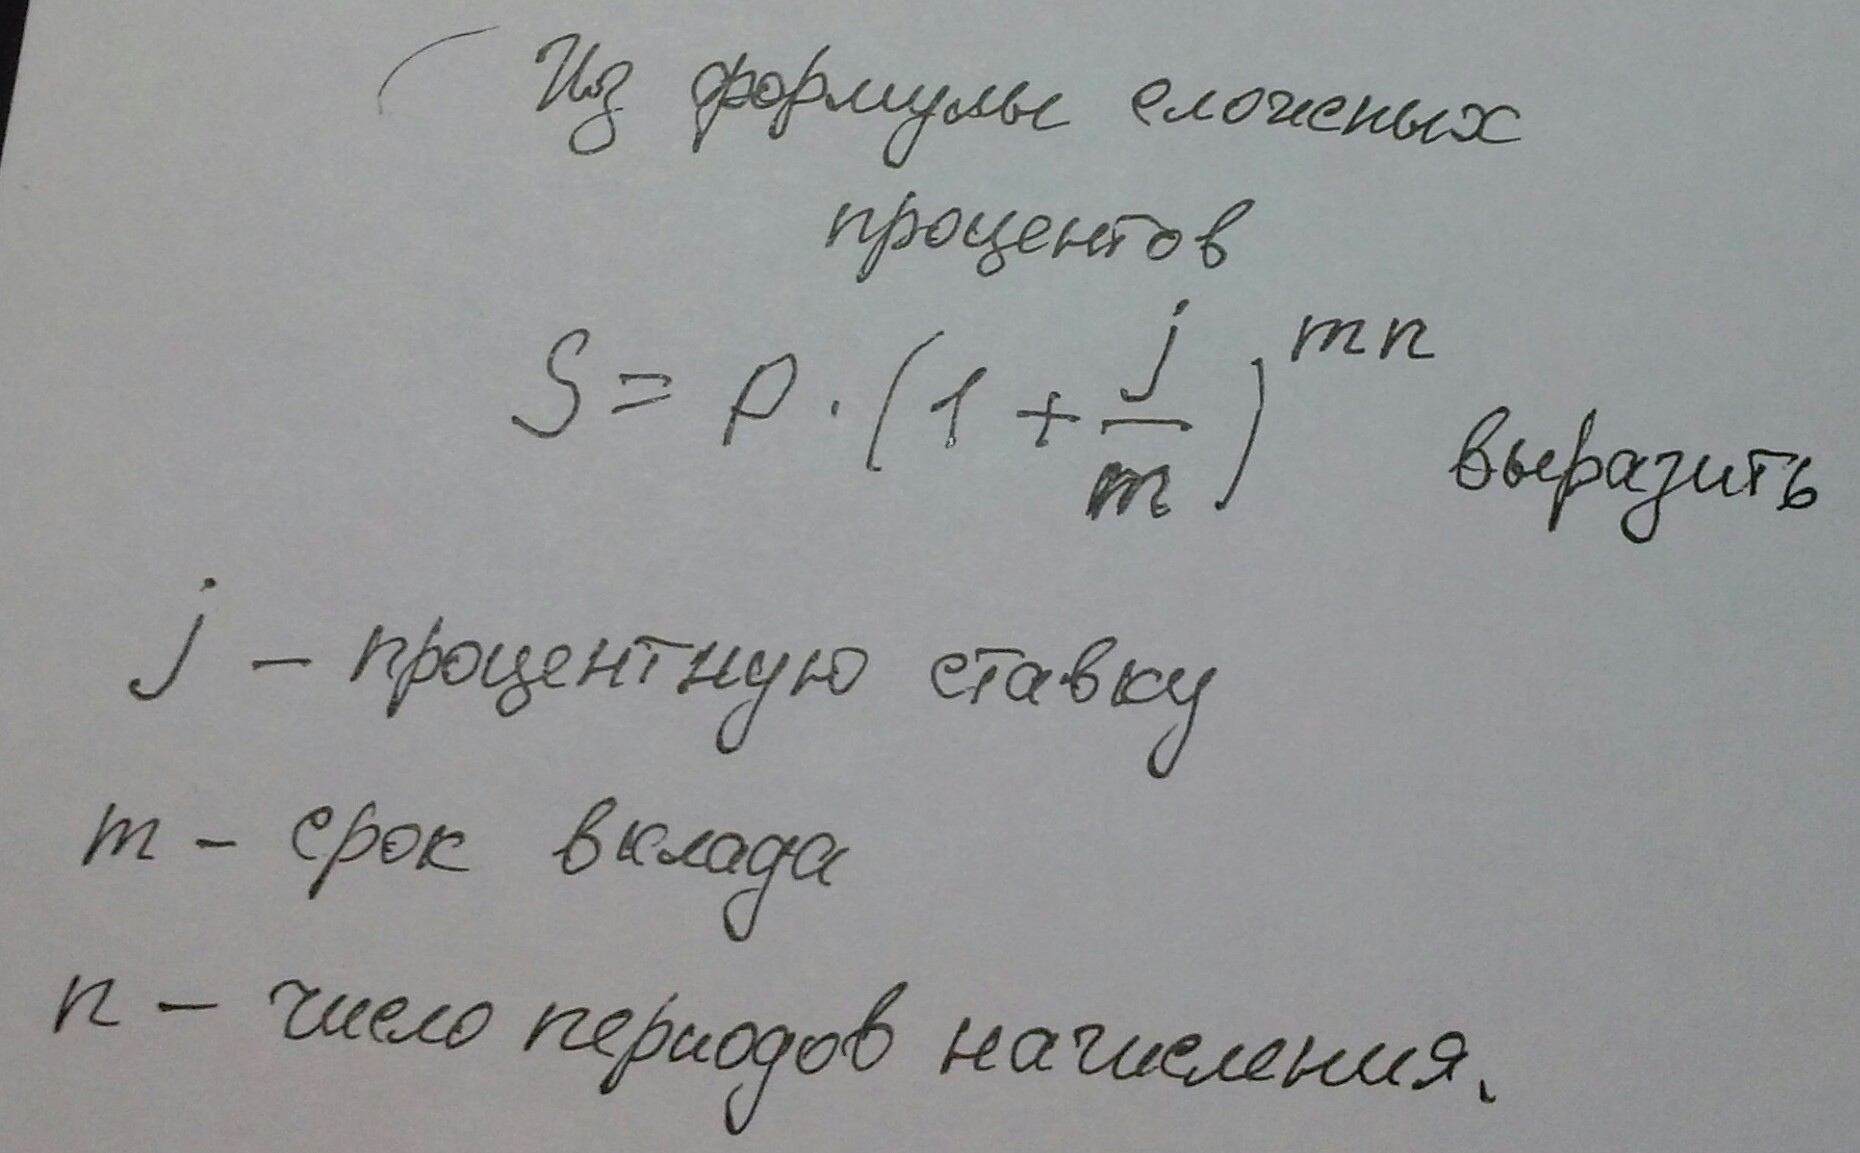 Из формулы сложных
процентов
S = P · (1 + j/m)^mn выразить
j – процентную ставку
m – срок вклада
n – число периодов начисления.